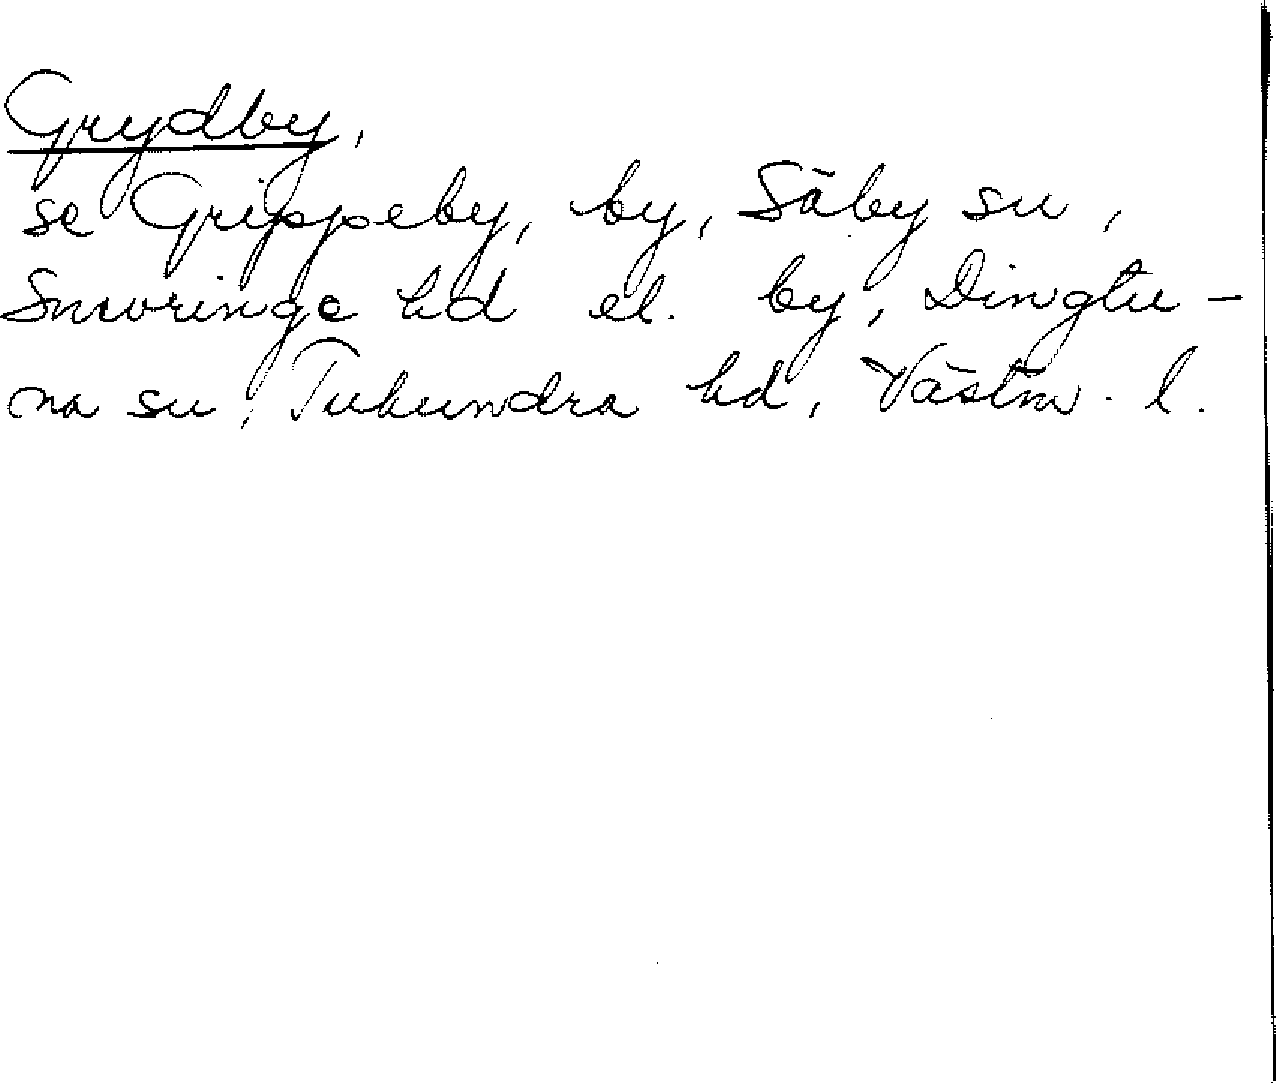 Grydby,
se Grippeby, by, Säby sn,
Snevringe hd el. by, Dingtu-
na sn, Tuhundra hd, Västm. l.